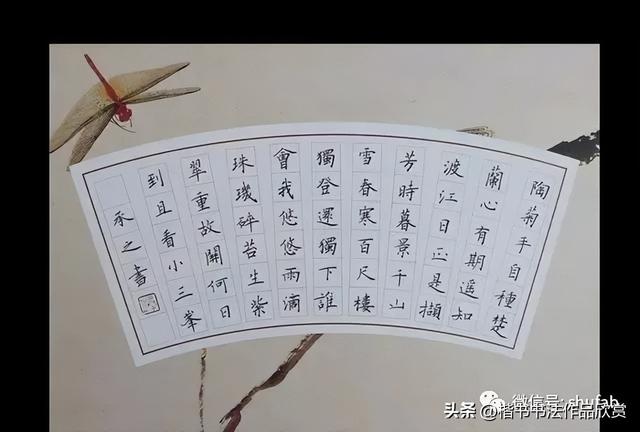 陶菊手自種楚
蘭心有期遥知
渡江日正是擷
芳時暮景千山
雪春寒百尺樓
獨登還獨下誰
會我悠悠雨滴
珠璣碎苔生紫
翠重故關何日
到且看小三峯
承之書
微信号: shufab
头条 @楷书书法作品欣赏